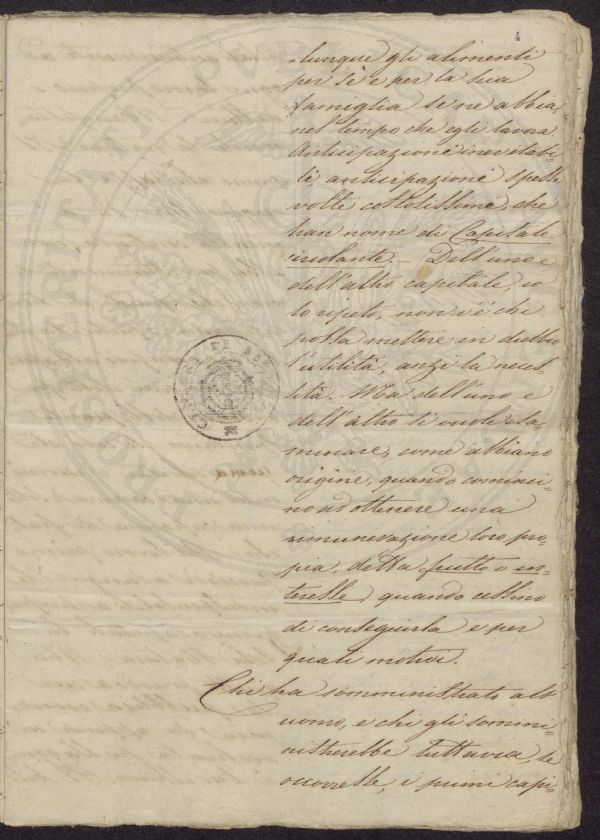 4
-lunque gli alimenti
per sè e per la sua
famiglia se ne abbia,
nel tempo che egli lavora.
Anticipazione inevitabi-
-le, anticipazione spesse
volte costosissime che
han nome di Capitale
circolante. Dell'uno e
dell'altro capitale, io
lo ripeto, non v'è chi
possa mettere in dubbio
l'utilità, anzi la neces-
sità. Ma dell'uno e
dell'altro si vuole esa-
minare, come abbiano
origine, quando cominci-
no ad ottenere una
rimunerazione loro pro-
pia, detta frutto o in-
teresse, quando cessino
di conseguirla e per
quali motivi.
Chi ha somministrato all'
uomo, e chi gli sommi-
nistrerebbe tuttavia, se
occorresse, i primi capi-
PROSPERITATI PVB